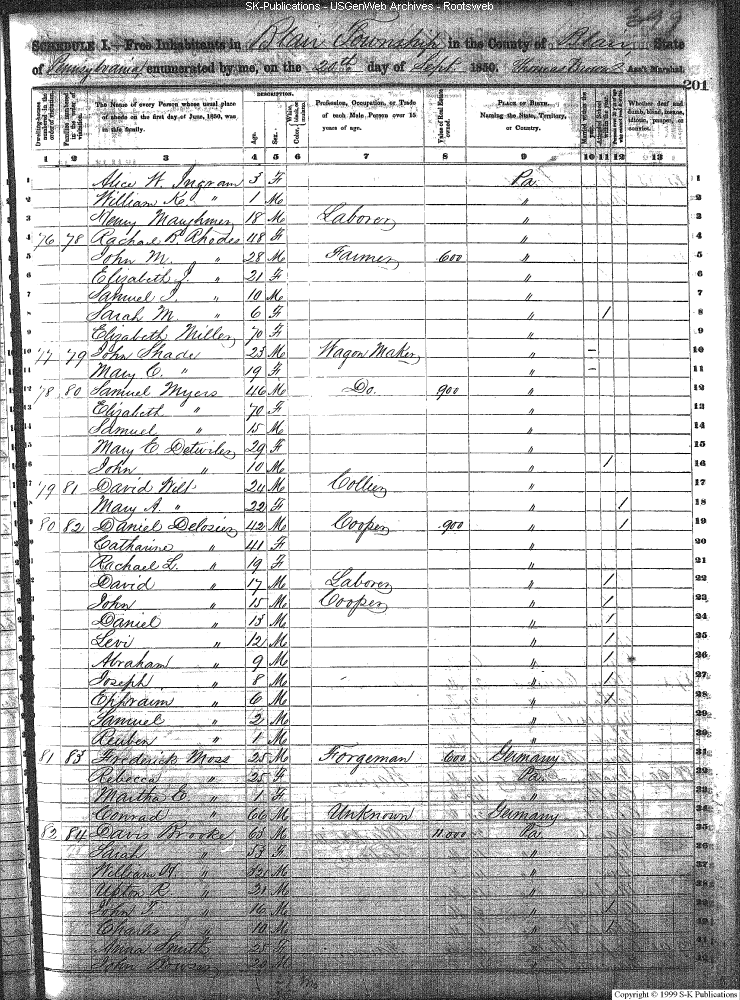 SK-Publications - USGenWeb Archives - Rootsweb
299
SCHEDULE I.—Free Inhabitants in Blair Township in the County of Blair State
of Pennsylvania enumerated by me, on the 20th day of Sept 1850. Thomas Brown Ass't Marshal.
201
Dwelling-houses numbered in the order of visitation.
Families numbered in the order of visitation.
The Name of every Person whose usual place of abode on the first day of June, 1850, was in this family.
DESCRIPTION.
Age.
Sex.
Color
Profession, Occupation, or Trade of each Male Person over 15 years of age.
Value of Real Estate owned.
PLACE OF BIRTH. Naming the State, Territory, or Country.
Married within the year.
Attended School within the year.
Whether deaf and dumb, blind, insane, idiotic, pauper, or convict.
1 2 3 4 5 6 7 8 9 10 11 12 13
1 Alice W. Ingram 3 F Pa 1
William K. " 1 M " 2
3 Henry Maughmer 18 M Laborer " 3
4 76 78 Rachael B. Rhodes 48 F " 4
5 John M. " 28 M Farmer 600 " 5
6 Elizabeth J. " 21 F " 6
7 Samuel I. " 10 M " 7
8 Sarah M " 6 F " / 8
Elizabeth Miller 70 F " 9
77 79 John Shade 23 M Wagon Maker " – 10
Mary C. " 19 F " – 11
78 80 Samuel Myers 46 M Do. 900 " 12
Elizabeth " 70 F " 13
Samuel " 15 M " 14
Mary E. Detwiler 29 F " 15
John " 10 M " / 16
79 81 David Wilt 24 M Collier " 17
Mary A. " 22 F " / 18
80 82 Daniel Delosier 42 M Cooper 900 " / 19
Catharine " 41 F " 20
Rachael L. " 19 F " 21
David " 17 M Laborer " / 22
John " 15 M Cooper " / 23
Daniel " 13 M " / 24
Levi " 12 M " / 25
Abraham " 9 M " / 26
Joseph " 8 M " / 27
Ephraim " 6 M " / 28
Samuel " 2 M " 29
Reuben " 1 M "
81 83 Frederick Moss 25 M Forgeman 600 Germany
Rebecca " 25 F Pa
Martha E. " 1 F "
Conrad " 66 M Unknown Germany
82 84 Davis Brooke 63 M 11.000 Pa
Sarah " 53 F "
William H. " M "
Upton R. " 21 M "
John T. " 16 M " /
Charles " 10 M " /
Anna Smith 25 F "
John 29 M "
Copyright © 1999 S-K Publications